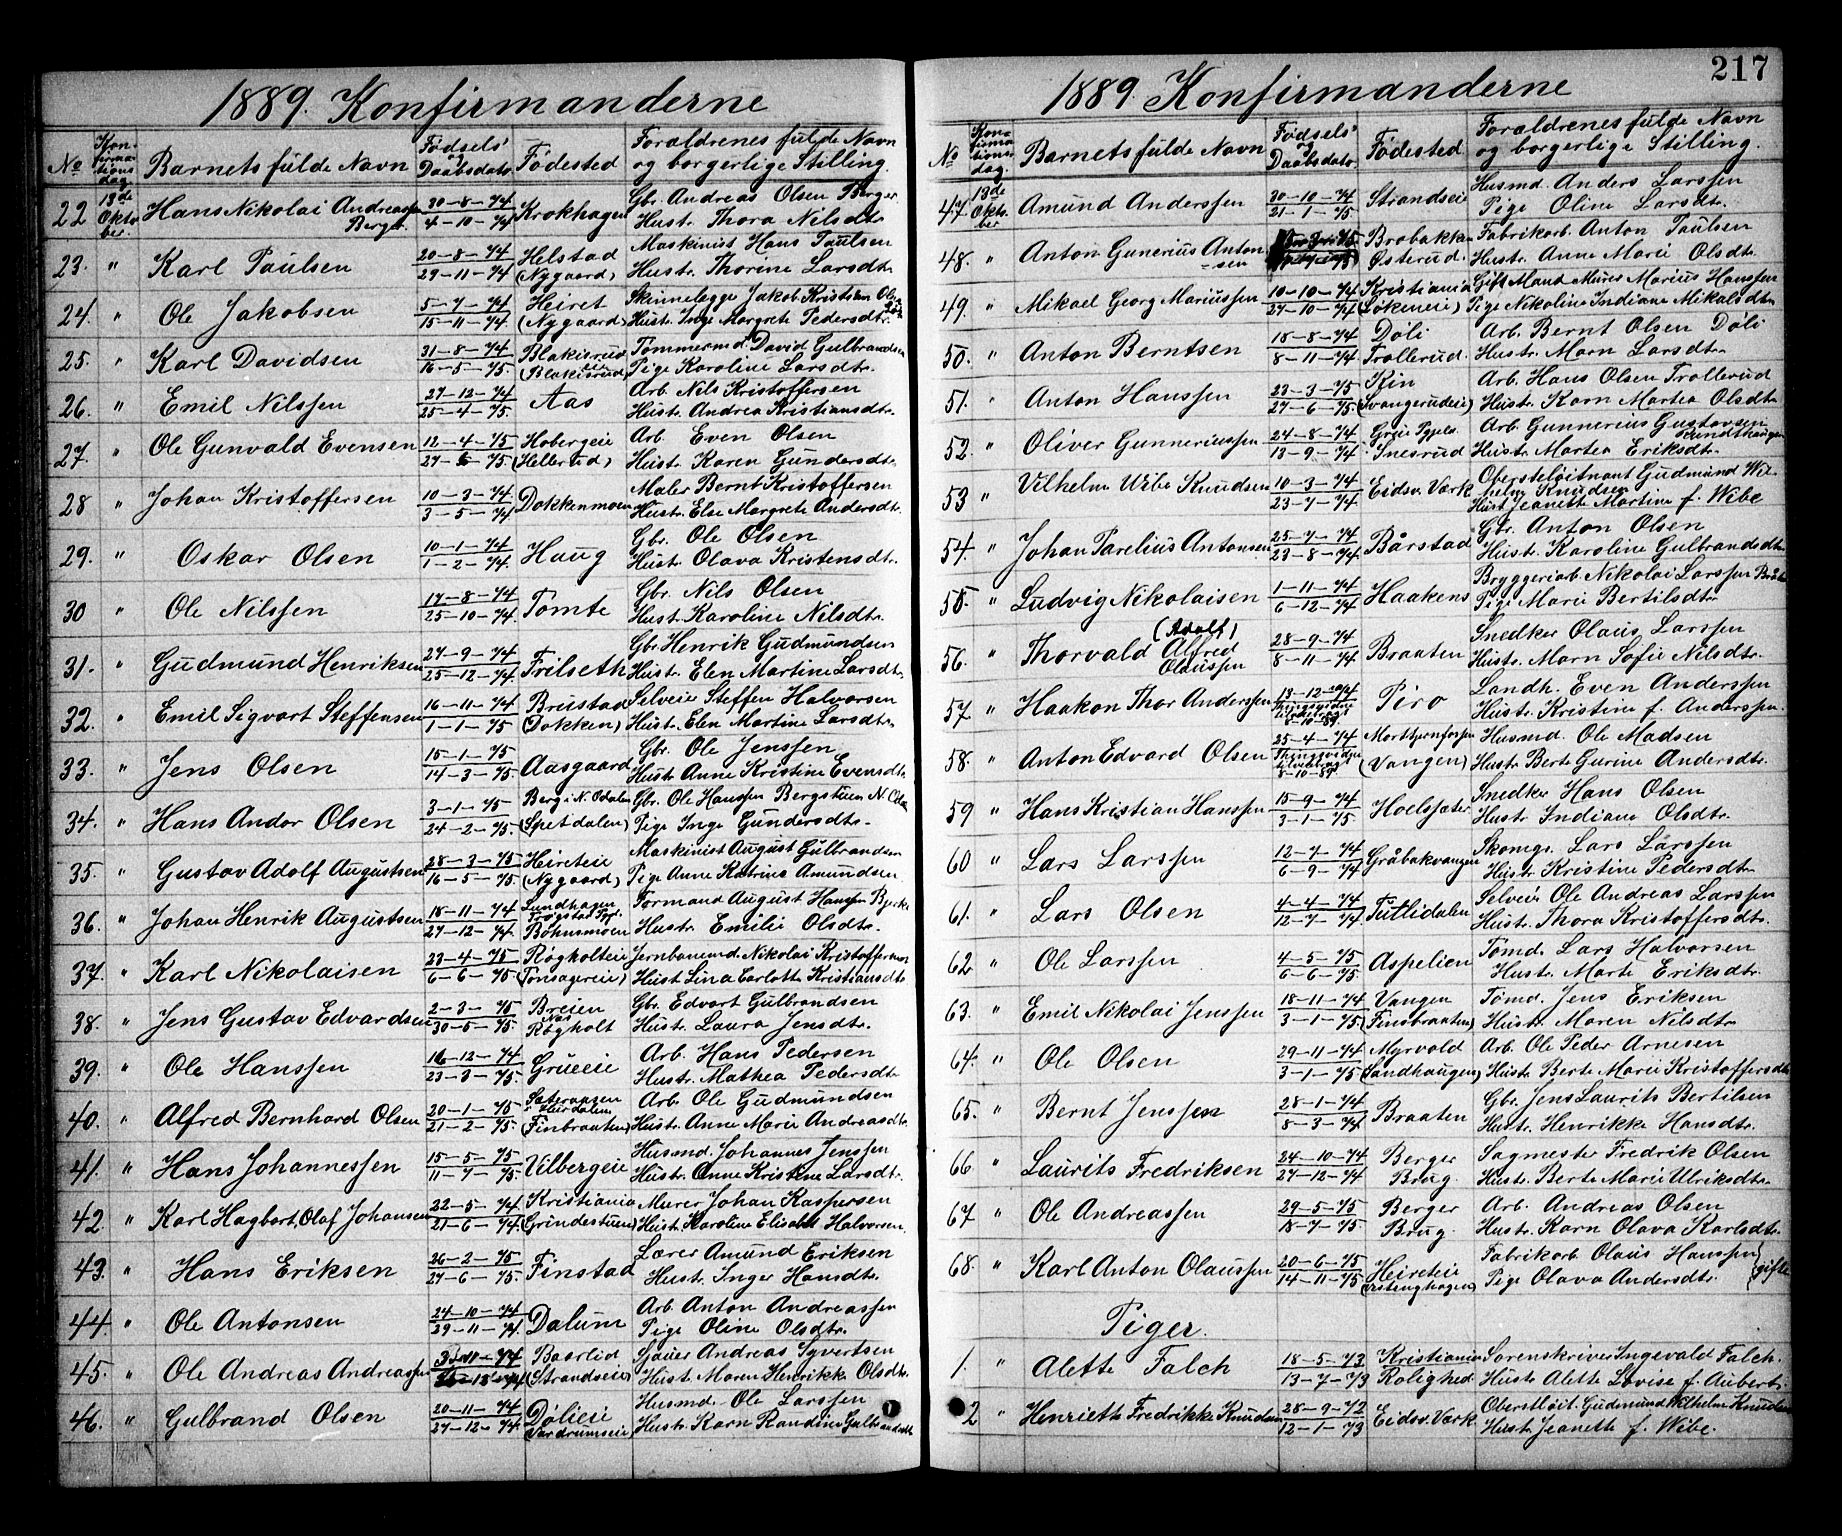 1889. Konfirmanderne
No Konfirmationsdag. Barnets fulde Navn Fødsels og Daabsdato Fødested Forældrenes fulde Navn og borgerlige Stilling.
22 13de Oktober. Hans Nikolai Andreassen Berger 30-8-74 4-10-74 Krokhagen Gbr. Andreas Olsen Berger Hustr. Thora Nilsdtr
23. " Karl Paulsen 20-8-74 29-11-74 Helstad (Nygaard) Maskinist Hans Paulsen Hustr. Thorine Larsdtr
24. " Ole Jakobsen 5-7-74 15-11-74 Heiret (Nygaard) Skinnelegge Jakob Kristian Hustr. Inge Margrete Pedersdtr.
25. " Karl Davidsen 31-8-74 16-5-75 Blakisrud (Blakisrud) Tømmermd David Gulbrandsen Pige Karoline Larsdtr.
26. " Emil Nilssen 27-12-74 25-4-75. Aas Arb. Nils Kristoffersen Hustr. Andrea Kristiansdtr.
27. " Ole Gunvald Evensen 12-4-75 27-5-75 Hobergeie (Hellerud) Arb. Even Olsen Hustr. Karen Gundersdtr.
28 " Johan Kristoffersen 10-3-74 3-5-74 Dokkenmoen Maler Bernt Kristoffersen Hustr. Else Margrete Andersdtr.
29. " Oskar Olsen 10-1-74 1-2-74. Haug Gbr. Ole Olsen Hust. Olava Kristensdtr.
30 " Ole Nilssen 17-8-74 25-10-74. Tomte Gbr. Nils Olsen Hust. Karoline Nilsdtr.
31. " Gudmund Henriksen 27-9-74 25-12-74. Frilseth Gbr Henrik Gudmundsen Hustr. Elen Martine Larsdtr.
32. " Emil Sigvart Steffensen 16-11-74 1-1-75 Brustad (Dokken) Selveie Steffen Halvorsen Hustr. Elen Martine Larsdtr.
33. " Jens Olsen 15-1-75 14-3-75. Aasgaard Gbr. Ole Jenssen Hust. Anne Kristine Evensdtr.
34. " Hans Andor Olsen 3-1-75 24-2-75. Berg i N. Odalen (Spetalen) Gbr. Ole Hanssen Bergstuen N. Oda Pige Inge Gundersdtr.
35. " Gustav Adolf Augustsen 28-3-75 16-5-75. Heireteie (Nygaard) Maskinist August Gulbrandsen Pige Anne Katrina Amundsen
36. " Johan Henrik Augustsen 18-11-74 27-12-74. Lundhagen Trøgstad Bøhnsmoen Formand August Hansen Bjerke Hustr. Emilie Olsdtr.
37. " Karl Nikolaisen 23-4-75 6-6-75 Røgholteie (Tonsagereie) Jernbanemd. Nikolai Kristoffersen Hust Lina Carlotte Kristiansdtr
38. " Jens Gustav Edvardsen 2-3-75 30-5-75. Breien Røgholt Gbr. Edvart Gulbrandsen Hustr. Laura Jensdtr.
39. " Ole Hanssen 16-12-74 23-3-75. Grueeie Arb. Hans Pedersen Hustr. Mathea Pedersdtr
40. " Alfred Bernhard Olsen 20-1-75 21-2-75. Hurdalen (Finbraaten) Arb. Ole Gudmundsen Hustr. Anne Marie Andreasdtr.
41. " Hans Johannessen 15-5-75 11-7-75. Vilbergeie Husmd. Johannes Jenssen Hustr. Anne Kristine Larsdtr.
42. " Karl Hagbart Olaf Johansen 22-5-74 21-6-74. Kristiania (Grindestuen) Murer Johan Kaspersen Hust. Karoline Elisabet Halvorsen.
43. " Hans Eriksen 26-2-75 27-6-75. Finstad Lærer Amund Eriksen Hustr. Inger Hansdtr.
44. " Ole Antonsen 24-10-74 29-11-74. Dalum Arb. Anton Andreassen Pige Oline Olsdtr.
45. " Ole Andreas Andreassen Baarlid (Strandseie) Gauer Andreas Syvertsen Hust. Maren Henrikke Olsdtr.
46. " Gulbrand Olsen 20-11-74 27-12-74. Dølieie Husmd. Ole Larssen Hustr. Karn Randine Gulbrandsdtr
217
1889. Konfirmanderne
No Konfirmationsdag. Barnets fulde Navn Fødsels og Daabsdato Fødested Forældrenes fulde Navn og borgerlige Stilling.
47. 13de Oktober Amund Anderssen 30-10-74 21-1-75 Strandseie Husmd. Anders Larssen Pige Oline Larsdtr.
48. " Anton Gunerius Antonsen Brobakke Østerud. Fabrikarb. Anton Paulsen Hustr. Anne Marie Olsdtr.
49. " Mikael Georg Mariussen 10-10-74 27-10-74 Kristiania (Løkeneie) Gift Mand Murer Marius Hanssen Pige Nikoline Indiane Mikalsdtr
50. " Anton Berntsen 18-8-74 8-11-74 Døli Trollerud. Arb. Bernt Olsen Døli Hustr. Marn Larsdtr.
51. " Anton Hanssen 23-3-75 27-6-75 Kin (Svangerudeie) Arb. Hans Olsen Trollerud Hustr. Karn Martea Olsdtr
52. " Oliver Gunneriussen 24-8-74 13-9-74. Snesrud Arb Gunnerius Gustavsen Sundthaugen Hustr. Martea Eriksdtr.
53 " Vilhelm Wibe Knudsen 10-3-74 23-7-74 Eidsv. Værk Oberstløitnant Gudmund Wilhelm Knudsen Hust. Jeanette Martine f. Wibe
54. " Johan Parelius Antonsen 25-7-74 23-8-74. Bårstad Gbr. Anton Olsen Hustr. Karoline Gulbrandsdtr
55. " Ludvig Nikolaisen 1-11-74 6-12-74 Haakens Bryggeriarb. Nikolai Larssen Bråten Pige Marie Bertilsdtr.
56. " Thorvald (Adolf) Alfred Olaussen 28-9-74 8-11-74 Braaten Snedker Olaus Larssen Hustr. Marn Sofie Nilsdtr.
57 " Haakon Thor Anderssen 13-12-74 8-10-89. Piro Landh. Even Anderssen Hustr. Kristine f. Anderssen.
58. " Anton Edvard Olsen 25-4-74 8-10-89 (Vangen) Husmd. Ole Madsen Hustr Berte Gurine Andersdtr.
59 " Hans Kristian Hanssen 15-9-74 3-1-75 Hoelsæter Snedker Hans Olsen Hustr. Indiane Olsdtr.
60 " Lars Larssen 12-7-74 6-9-74 Gråbakvangen Skomgr. Lars Larssen Hustr. Kristine Pedersdtr
61. " Lars Olsen 4-4-74 12-7-74. Tutlidalen Selveier Ole Andreas Larssen Hustr. Thora Kristoffersdtr.
62 " Ole Larssen 4-5-75 6-6-75 Aspelien Tømd. Lars Halvorsen Hustr. Marte Eriksdtr.
63. " Emil Nikolai Jenssen 18-11-74 3-1-75. Vangen (Finsbraaten) Tømd. Jens Eriksen Hustr. Maren Nilsdtr.
64. " Ole Olsen 29-11-74 3-1-75 Myrvold (Sandhaugen) Arb. Ole Peder Arnesen Hustr Berte Marie Kristoffersdtr
65. " Bernt Jenssen 28-1-74 8-3-74 Braaten Gbr. Jens Laurits Bertilsen Hustr. Henrikke Hansdtr.
66 " Laurits Fredriksen 24-10-74 27-12-74 Berger Brug. Sagmester Fredrik Olsen Hustr. Berte Marie Ulriksdtr.
67 " Ole Andreassen 29-5-75 18-7-75 Berger Brug Arb. Andreas Olsen Hustr. Karn Olava Karlsdtr.
68. " Karl Anton Olaussen 20-6-75 14-11-75 Heireteie Fabrikarb Olaus Hanssen Pige Olava Andersdtr. } gifte
Piger.
1. " Alette Falch 18-5-73 13-7-73 Kristiania Rolighed Sorenskriver Ingevald Falch. Hustr. Alette Lovise f. Aubert.
2 " Henriette Fredrikke Knudsen 28-9-72 12-1-73 Eidsv. Værk Oberstløit. Gudmund Wilhelm Knudsen Hustr. Jeanette f. Wibe.